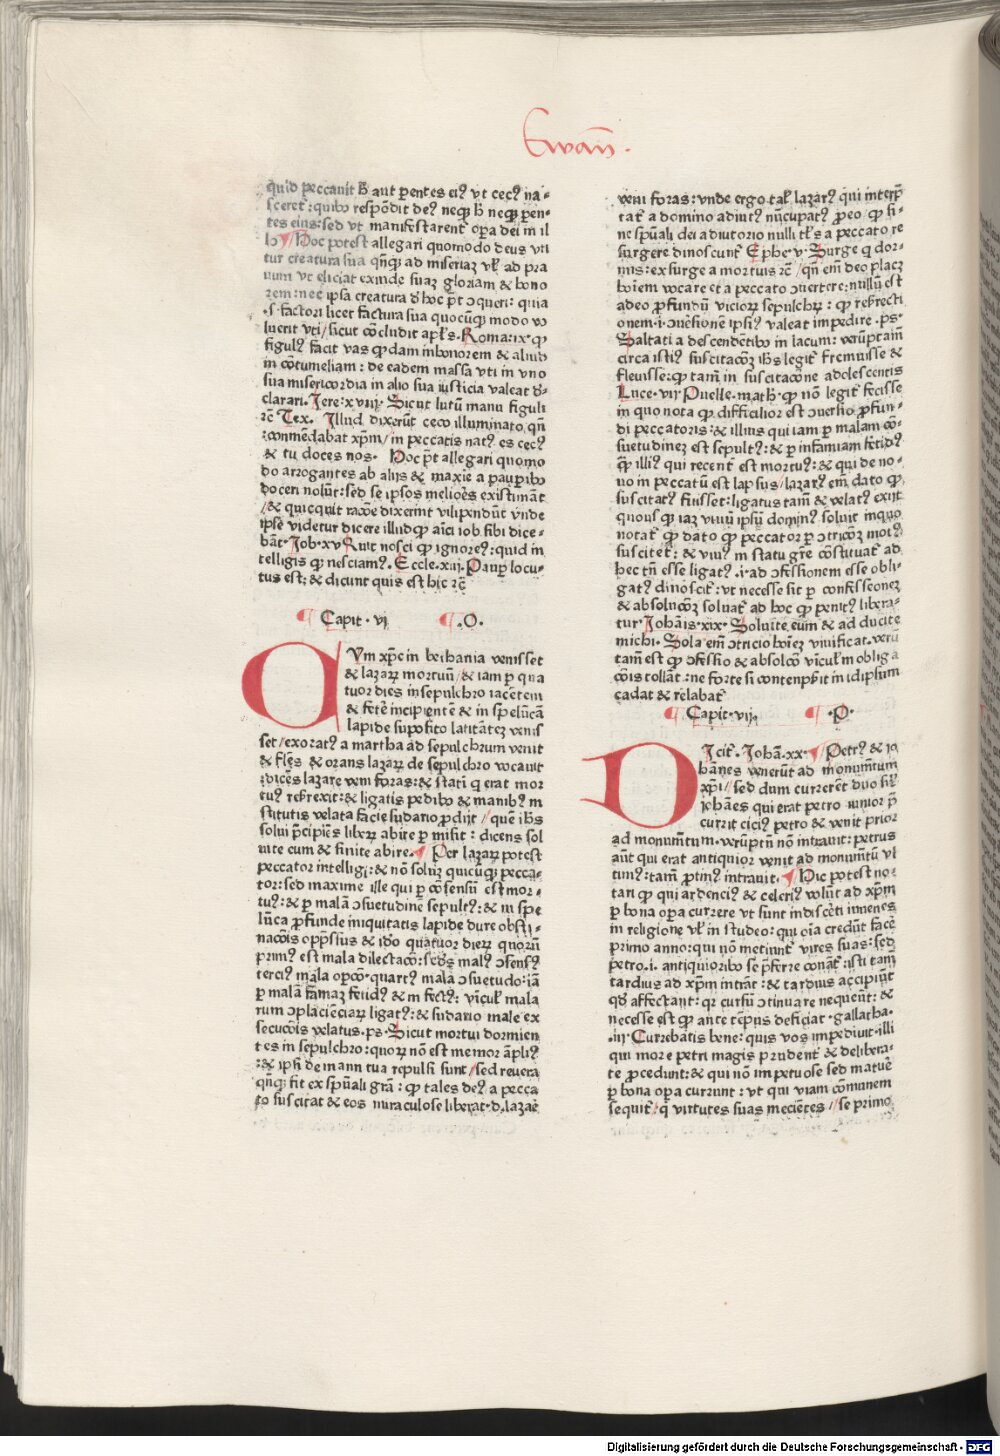 Ewan̄.
quid peccauit h̄ aut parentes eiꝰ vt cecꝰ na-
sceret᷑: quibꝰ respōdit deꝰ neqꝫ h̄ neqꝫ paren-
tes eius: sed vt manifestarent᷑ oꝑa dei in il
lo Hoc potest allegari quomodo deus vti
tur creatura sua qn̄qꝫ ad miseriaꝫ vl̓ ad pra
uum vt eliciat exinde suaꝫ gloriam & hono
rem: nec ipsa creatura ꝺ̓ hoc pōt ɔqueri: quia
.s. factori licet factura sua quocūqꝫ modo vo
luerit vti/ sicut cōcludit apl̓s. Roma.ix. ꝙ
figulꝰ facit vas ꝙdam in honorem & aliud
in cōtumeliam: de eadem massa vti in vno
sua misericordia in alio sua iusticia valeat ꝺ̓-
clarari. Jere.xviii. Sicut lutū manu figuli
rc̄ Tex. Illud dixerūt ceco illuminato. qn̄
cōmēdabat xp̄m/ in peccatis natꝰ es cecꝰ
& tu doces nos. Hoc pōt allegari quomo
do arrogantes ab alijs & maxīe a pauꝑibꝰ
doceri nolūt: sed se ipsos meliores existimāt
/& quicquit racōe dixerint vilipendūt vnde
ipse videtur dicere illud ꝙ amici iob sibi dice-
bāt. Job.xv Quit nosci ꝙ ignoreꝰ: quid in
telligis ꝙ nesciamꝰ. Eccle.xiij. Pauꝑ locu-
tus est: & dicunt quis est hic rc̄
¶ Capit. vi ¶ .O.
CVm xp̄c in bethania venisset
& lazarꝫ mortuū/ & iam ꝑ qua
tuor dies in sepulchro iacētem
& fetē incipientē & in spelūca
lapide suꝑposito latitāteꝫ venis
set/ exoratꝰ a martha ad sepulchrum venit
& flēs & orans lazarꝫ de sepulchro vocauit
dicēs lazare veni foras: & statī q̇ erat mor
tuꝰ resurexit: & ligatis pedibꝰ & manibꝰ in
stitutis velata facie sudario ꝓdijt/ quē ihs̄
solui p̄cipiēs liberꝫ abire ꝑmisit: dicens sol
uite eum & sinite abire. ¶ Per lazarꝫ potest
peccator intelligi: & nō soluꝫ quicūqꝫ pecca-
tor: sed maxime ille qui ꝑ cōsensū est mor-
tuꝰ: & ꝑ malā ɔsuetudinē sepultꝰ: & in spe
lūca ꝓfunde iniquitatis lapide dure obsti-
nacōis oppͥssus & iꝺ̓o quatuor dierꝫ quorū
primꝰ est mala dilectacō: secūdꝰ malꝰ ɔsensꝰ
tercius mala oꝑacō. quartꝰ mala ɔsuetudo: iā
ꝑ malā famaꝫ fetidꝰ & infectꝰ: vīculꝭ mala
rum ɔplacienciarꝫ ligatꝰ: & sudario male ex
secucōis velatus. ps. Sicut mortui dormien
tes in sepulchro: quorꝫ nō est memor ampliꝰ
: & ipsi de manu tua repulsi sunt/ sed reuera
qn̄qꝫ fit ex spūali grā: ꝙ tales deꝰ a pecca
to suscitat & eos miraculose liberat. d. lazare
veni foras: vnde ergo talꝭ lazarꝰ qui interp̄
tat᷑ a domino adiutꝰ nūcupatꝰ ꝓ eo/ ꝙ si-
ne spūali dei adiutorio nulli tl̓s a peccato re
surgere dinoscunt᷑ Ephe.v. Surge q̇ dor-
mis: exsurge a mortuis rc̄/ qn̄ em̄ deo placꝫ
hoīem vocare et a peccato ɔuertere: nullū est
adeo ꝓfundū viciorꝫ sepulchrꝫ: ꝙ resurecti
onem .i. ɔuersionē ipsiꝰ valeat impedire. ps.
Saluasti a descendētibꝰ in lacum: verūptamē
circa istiꝰ suscitacōꝫ ihs̄ legit᷑ fremuisse &
fleuisse: ꝙ tamē in suscitacōne adolescentis
Luce.vii Puelle. math. ꝙ nō legit᷑ fecisse
in quo nota ꝙ difficilior est ɔuersio ꝓfun-
di peccatoris: & illius qui iam ꝑ malam cō-
suetudineꝫ est sepultꝰ: & ꝑ infamiam fetidꝰ
qꝫ illiꝰ qui recent᷑ est mortuꝰ: & qui de no-
uo in peccatū est lapsus/ lazarꝰ em̄ dato ꝙ
suscitatꝰ fuisset: ligatus tamē & velatꝰ exijt
quousqꝫ iaꝫ viuū ipsū dominꝰ soluit in quo
notat᷑ ꝙ dato ꝙ peccator ꝑ ɔtricōꝫ motꝰ
suscitet᷑: & viuꝰ in statu gr̄e cōstituat᷑ ad
hec tn̄ esse ligatꝰ .i. ad ɔfessionem esse obli-
gatꝰ dinoscit᷑: vt necesse sit ꝑ confessioneꝫ
& absolucōꝫ soluat᷑ ad hoc ꝙ penitꝰ libera-
tur Johānis.xix. Soluite eum & adducite
michi. Sola em̄ ɔtricio hoīeꝫ viuificat. verū
tamē est ꝙ ɔfessio & absolucō viculꝫ obliga
cōis tollāt: ne forte si contempserit in idipsum
cadat & relabat᷑
¶ Capit.vij. ¶ .P.
DIcit᷑. Johā.xx. ¶ Petrꝰ & io
hānes venerūt ad monumētum
xp̄i/ sed dum currerēt duo sil̓
iohānes qui erat petro iunior p̄
currit ciciꝰ petro & venit prior
ad monumētum. verūptn̄ nō intrauit: petrus
aūt qui erat antiquior venit ad monumētū vl
timꝰ: tamē ꝓtinꝰ intrauit. ¶ Hic potest no-
tari ꝙ qui ardenciꝰ & celeriꝰ volūt ad xp̄m
ꝑ bona oꝑa currere vt sunt indiscreti iuuenes
in religione vl̓ in studeo: qui oīa credūt facē
primo anno: qui nō metiunt᷑ vires suas: sed
petro .i. antiquioribꝰ se p̄ferre conant᷑: isti tamē
tardius ad xp̄m intrāt: & tardius accipiunt
qd̓ affectant: qꝛ cursū ɔtinuare nequeūt: &
necesse est ꝙ ante tempus deficiāt. gallatha.
.iij. Currebatis bene: quis vos impediuit. illi
qui more petri magis prudent᷑ & delibera-
te ꝓcedunt: & qui nō impetuose sed mature
ꝑ bona oꝑa currunt: vt qui viam cōmunem
sequit᷑/ q̇ virtutes suas mecientes/ se primo
Digitalisierung gefördert durch die Deutsche Forschungsgemeinschaft - DFG